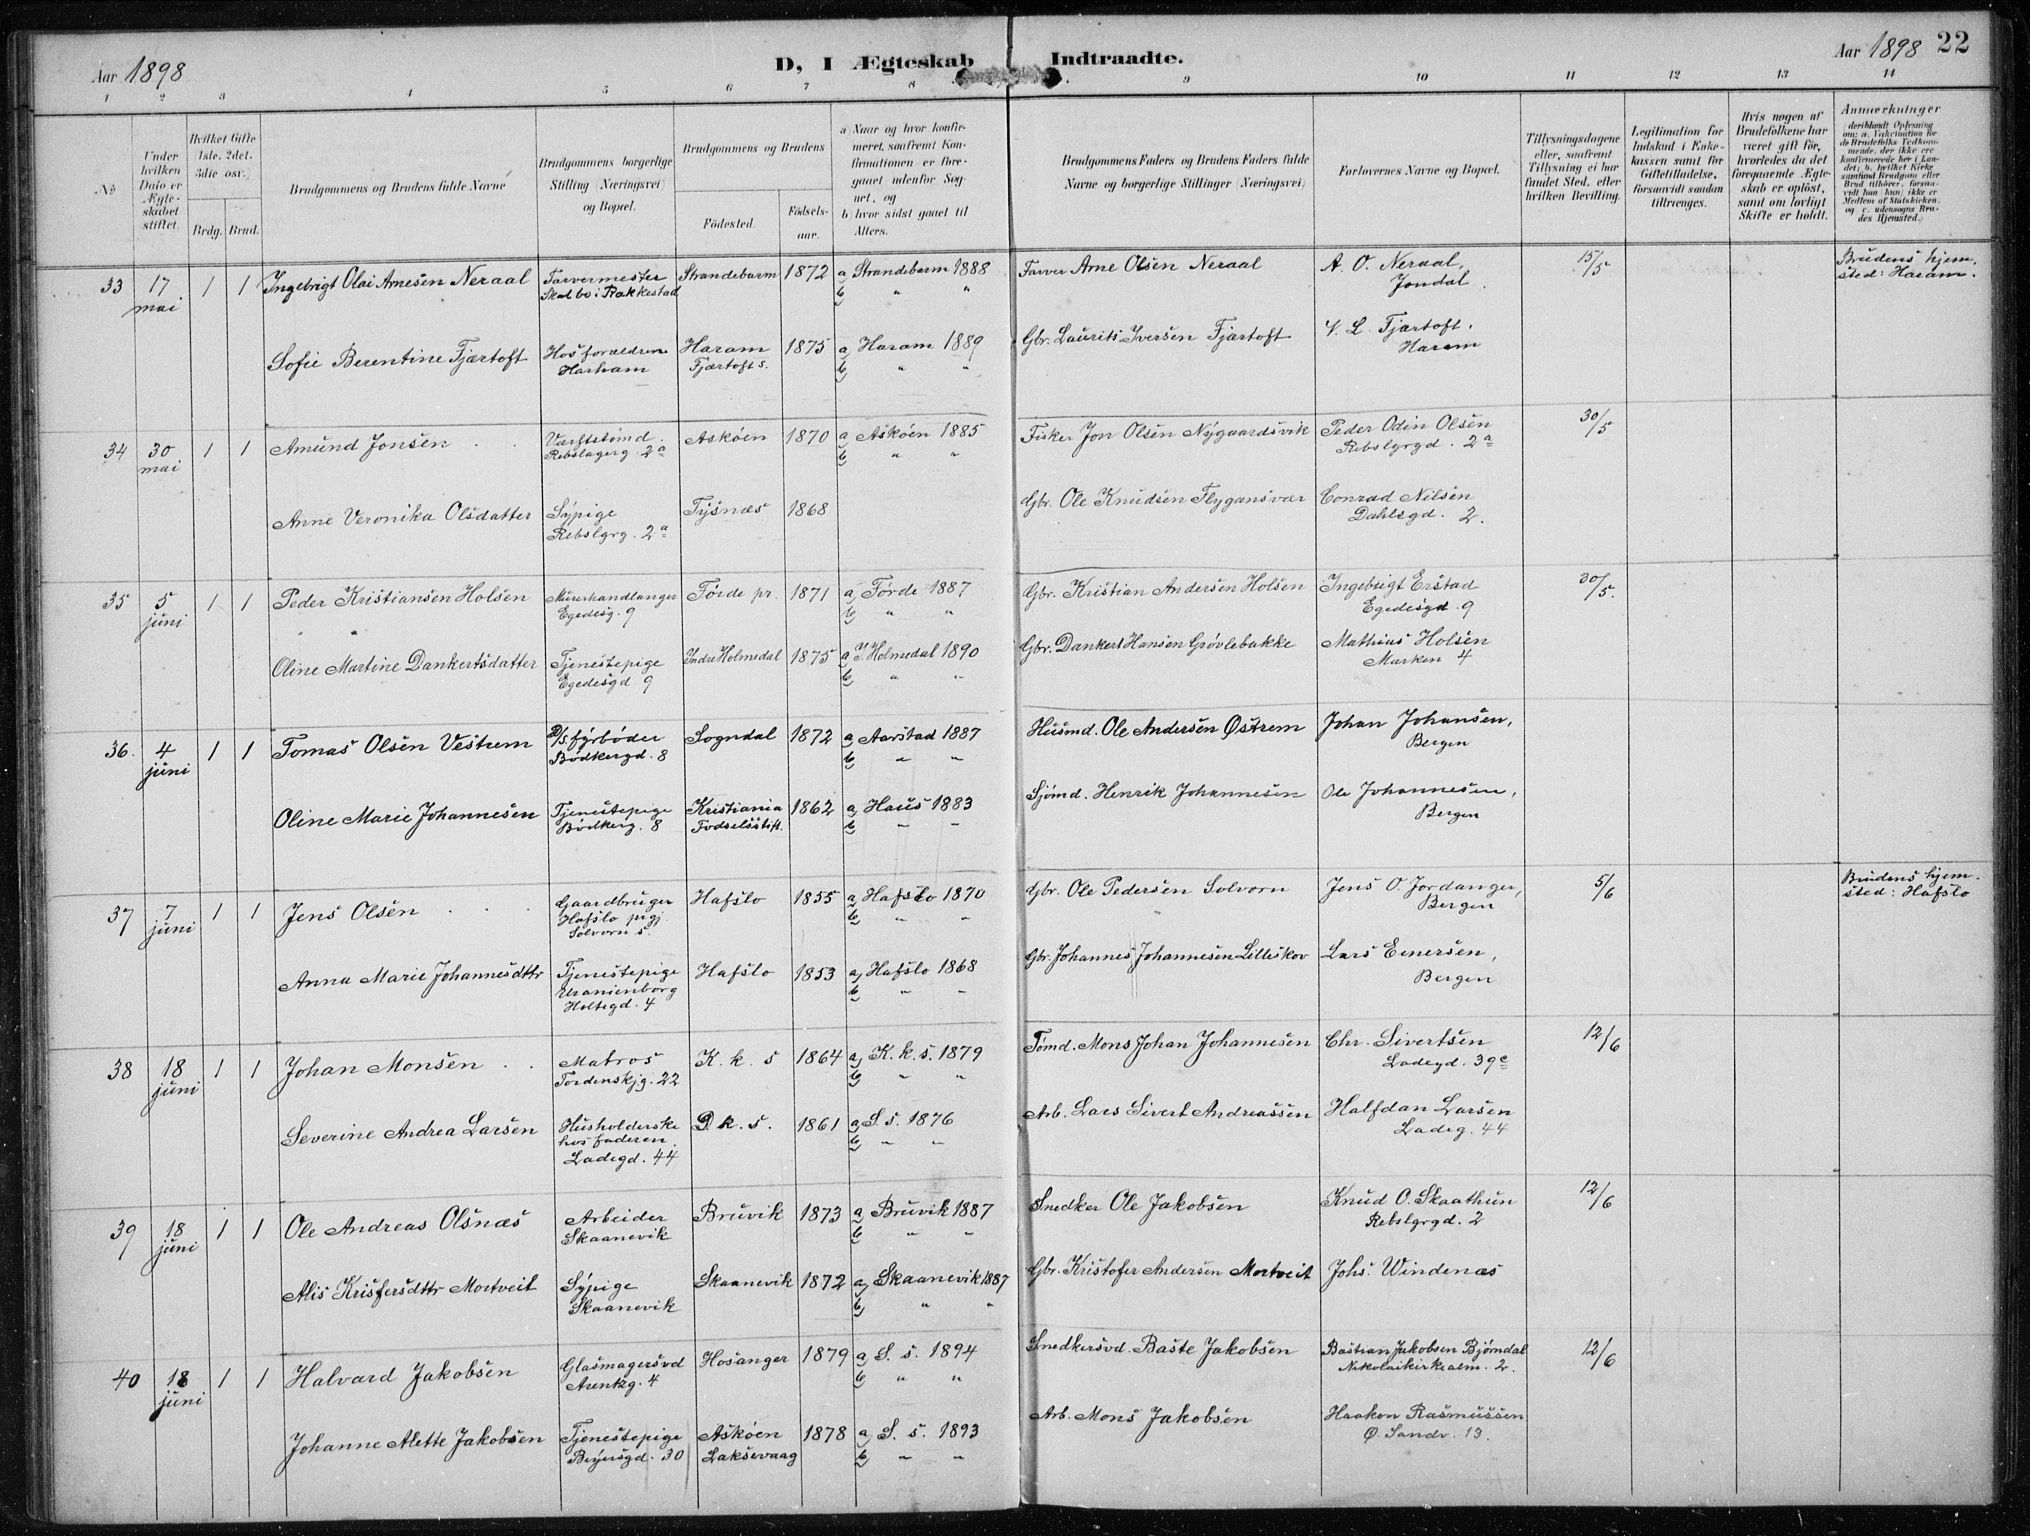 Aar 1898
D, I Ægteskab Indtraadte.
Aar 1898 22
1 2 3 4 5 6 7 8 9 10 11 12 13 14
No
Under
hvilken
Dato er
Ægte-
skabet
stiftet.
Hvilket Gifte
1ste, 2det,
3die osv.)
Brdg. Brud.
Brudgommens og Brudens fulde Navne
Brudgommens borgerlige
Stilling (Næringsvei)
og Bopæl.
Brudgommens og Brudens
Fødested.
Fødsels-
aar.
a) Naar og hvor konfir-
meret, saafremt Kon-
firmationen er fore-
gaaet udenfor Sog-
net, og
b) hvor sidst gaaet til
Alters.
Brudgommens Faders og Brudens Faders fulde
Navne og borgerlige Stillinger (Næringsvei)
Forlovernes Navne og Bopæl.
Tillysningsdagene
eller, saafremt
Tillysning ei har
fundet Sted, efter
hvilken Bevilling.
Legitimation for
Indskud i Enke-
kassen samt for
Giftetilladelse,
forsaavidt saadan
tiltrænges.
Hvis nogen af
Brudefolkene har
været gift før,
hvorledes da det
foregaaende Ægte-
skab er opløst,
samt om lovligt
Skifte er holdt.
Anmerkninger
(deriblandt Oplysning
om: a. Vakcination for
de Brudefolks Vedkom-
mende, der ikke ere
konfirmerede her i Lan-
det; b. hvilket Kirke-
samfund Brudgom eller
Brud tilhører, forsaa-
vidt han (hun) ikke er
Medlem af Statskirken,
og c. udensogns Bru-
des Hjemsted.)
33 17 mai 1 1 Ingebrigt Olai Arnesen Neraal Farvermester Strandebarm 1872 a) Strandebarm 1888 Farver Arne Olsen Neraal A. O. Neraal, 15/5 Brudens hjem-
Skal bo i Rakkestad b) " " Jondal. sted: Haram.
Sofie Berentine Fjærtoft Hos forældrene Haram 1875 a) Haram 1889 Gbr. Laurits Iversen Fjærtoft V. L. Fjærtoft,
Harham Fjærtoft s. b) " " Haram
34 30 mai 1 1 Amund Jonsen Værftstømd. Askøen 1870 a) Askøen 1885 Fisker Jon Olsen Nygaardsvik Peder Odin Olsen 30/5
Rebslagerg. 2a b) " " Rebslgrgd. 2a
Anne Veronika Olsdatter Sypige Tysnæs 1868 Gbr. Ole Knudsen Flygansvær Conrad Nilsen
Rebslgrg. 2a Dahlsgd. 2.
35 5 juni 1 1 Peder Kristiansen Holsen Murerhandlanger Førde pr. 1871 a) Førde 1887 Gbr. Kristian Andersen Holsen Ingebrigt Erstad 30/5.
Egedesg. 9 b) " " Egedesgd. 9
Oline Martine Dankertsdatter Tjenestepige Indre Holmedal 1875 a) I. Holmedal 1890 Gbr. Dankert Hansen Grøvlebakke Mathias Holsen
Egedesgd. 9 b) " " Marken 4
36. 4 juni 1 1 Tomas Olsen Vestrem D/s. fyrbøder Sogndal 1872 a) Aarstad 1887 Husmd. Ole Andersen Østrem Johan Johansen,
Bødkergd. 8 b) " " Bergen
Oline Marie Johannesen Tjenestepige Kristiania 1862 a) Haus 1883 Sjømd. Henrik Johannesen Ole Johannesen,
Bødkerg. 8 Fødselsstift. b) " " Bergen
37 7 juni 1 1 Jens Olsen Gaardbruger Hafslo 1855 a) Hafslo 1870 Gbr. Ole Pedersen Solvorn Jens O. Jordanger, 5/6 Brudens hjem-
Hafslo pgj. b) " " Bergen sted: Hafslo
Solvorn s.
Anna Marie Johannesdttr Tjenestepige Hafslo 1853 a) Hafslo 1868 Gbr. Johannes Johannesen Lilleskov Lars Enersen,
Uranienborg b) " " Bergen
Holtegd. 4
38 18 juni 1 1 Johan Monsen Matros K. k. s 1864 a) K. k. s. 1879 Tømd. Mons Johan Johannesen Chr. Sivertsen 12/6
Tordenskjg. 22 b) " " Ladegd. 39c
Severine Andrea Larsen Husholderske D k. s. 1861 a) S. s. 1876 Arb. Lars Sivert Andreassen Halfdan Larsen
hos faderen. b) " " Ladeg. 44
Ladegd. 44
39 18 juni 1 1 Ole Andreas Olsnæs Arbeider Bruvik 1873 a) Bruvik 1887 Snedker Ole Jakobsen Knud O. Skaathun 12/6
Skaanevik b) " " Rebslgrgd. 2
Alis Krisfersdttr Mortveit Sypige Skaanevik 1872 a) Skaanevik 1887 Gbr. Kristofer Andersen Mortveit Johs. Windenæs
Skaanevik b) " "
40 18 juni 1 1 Halvard Jakobsen Glasmagersvd Hosanger 1879 a) S. s. 1894 Snedkersvd. Baste Jakobsen Bastian Jakobsen Bjørndal 12/6
Arentzg. 4 b) " " Nikolaikirkealm. 2.
Johanne Alette Jakobsen Tjenestepige Askøen 1878 a) S. s. 1893 Arb. Mons Jakobsen Haakon Rasmussen
Beyersgd. 30 Laksevaag b) " " Ø. Sandv. 13.